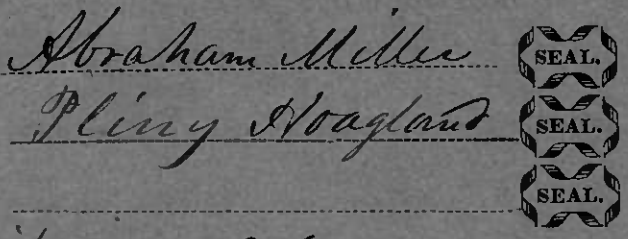 Abraham Miller SEAL.
Pliny Hoagland SEAL.
SEAL.